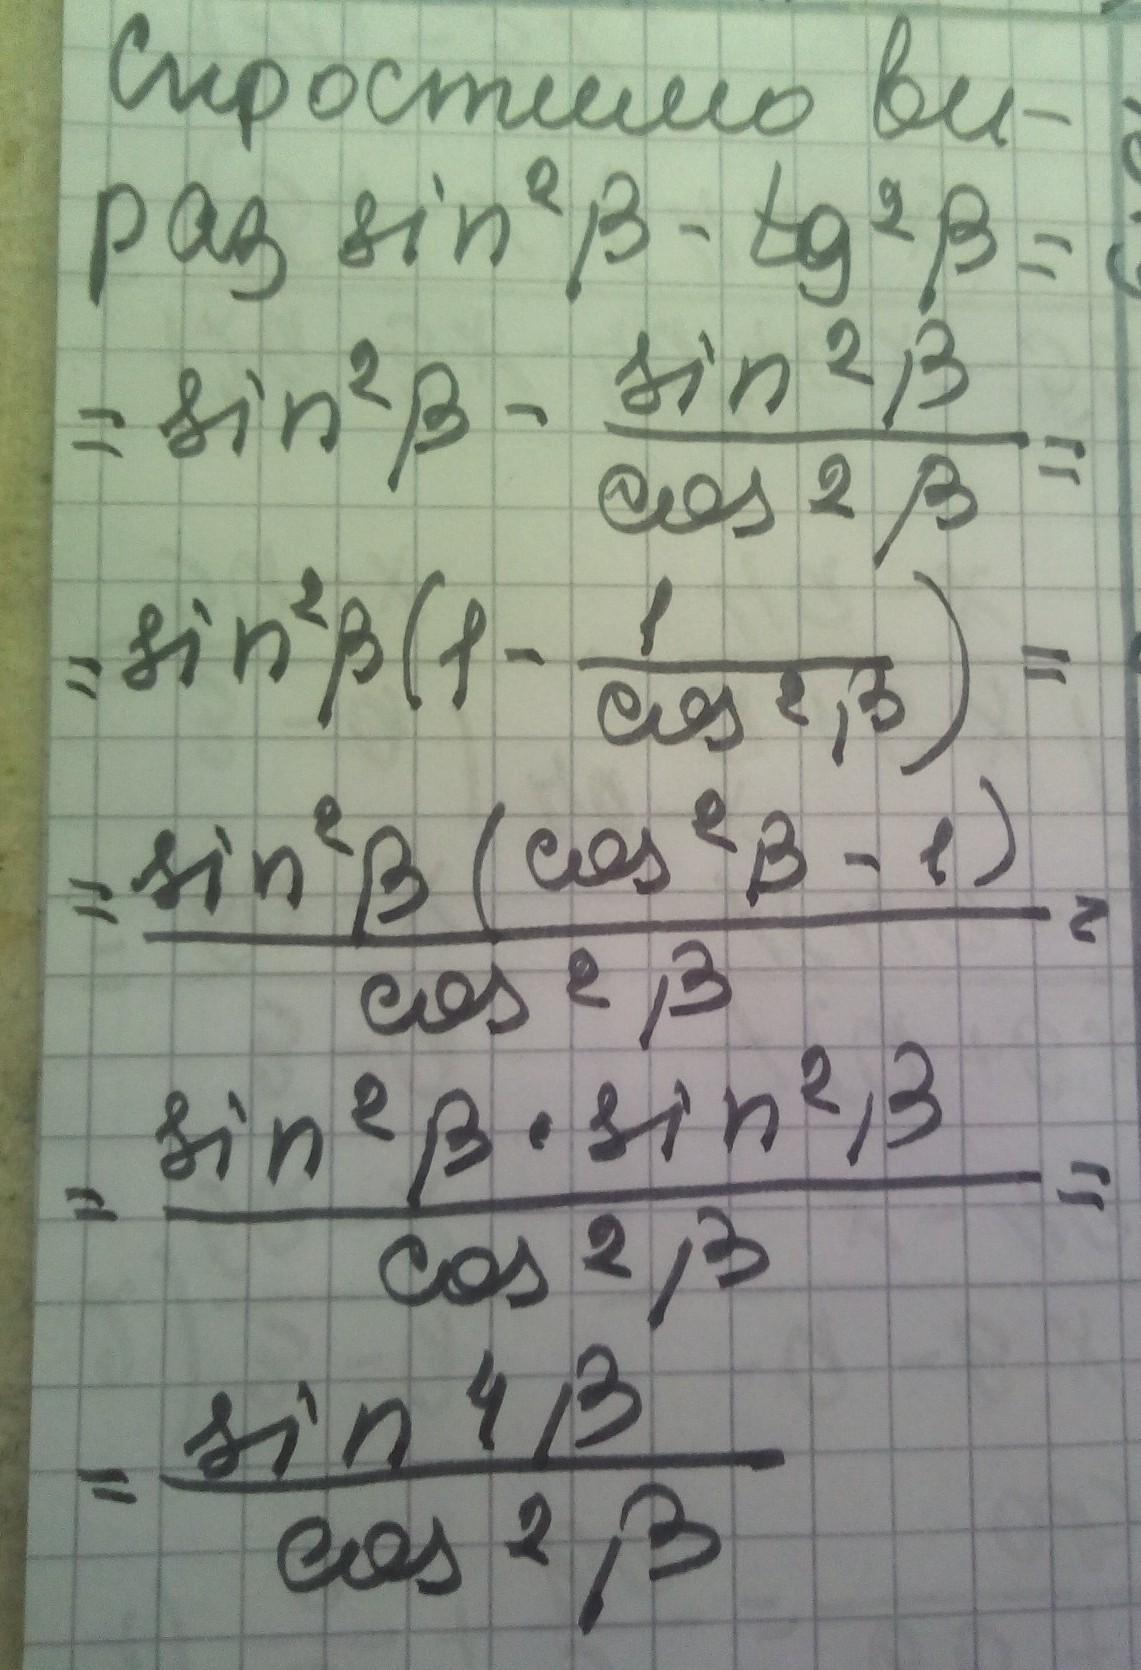 Спростимо ви-
раз sin²β - tg²β =
= sin²β - sin²β / cos²β =
= sin²β (1 - 1 / cos²β) =
= sin²β (cos²β - 1) / cos²β =
= sin²β · sin²β / cos²β =
= sin⁴β / cos²β